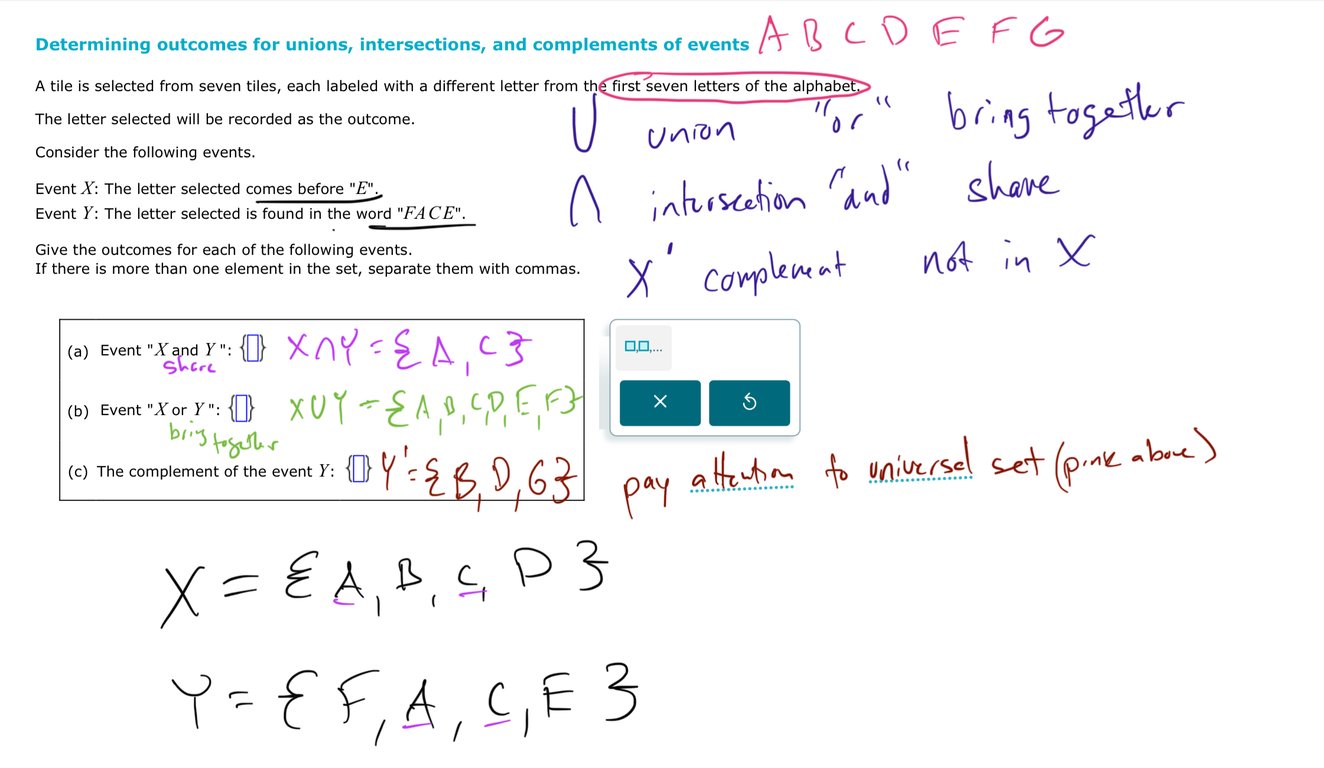 Determining outcomes for unions, intersections, and complements of events A B C D E F G
A tile is selected from seven tiles, each labeled with a different letter from the first seven letters of the alphabet.
The letter selected will be recorded as the outcome.
Consider the following events.
∪ union "or" bring together
Event X: The letter selected comes before "E".
Event Y: The letter selected is found in the word "FACE".
∩ interscetion "and" share
Give the outcomes for each of the following events.
If there is more than one element in the set, separate them with commas.
X' complement not in X
(a) Event "X and Y": {▯} X∩Y = {A, C}
share
▯,▯,...
(b) Event "X or Y": {▯} X∪Y = {A, B, C, D, E, F}
bring together
(c) The complement of the event Y: {▯} Y' = {B, D, G}
pay attention to universal set (pink above)
X = {A, B, C, D}
Y = {F, A, C, E}